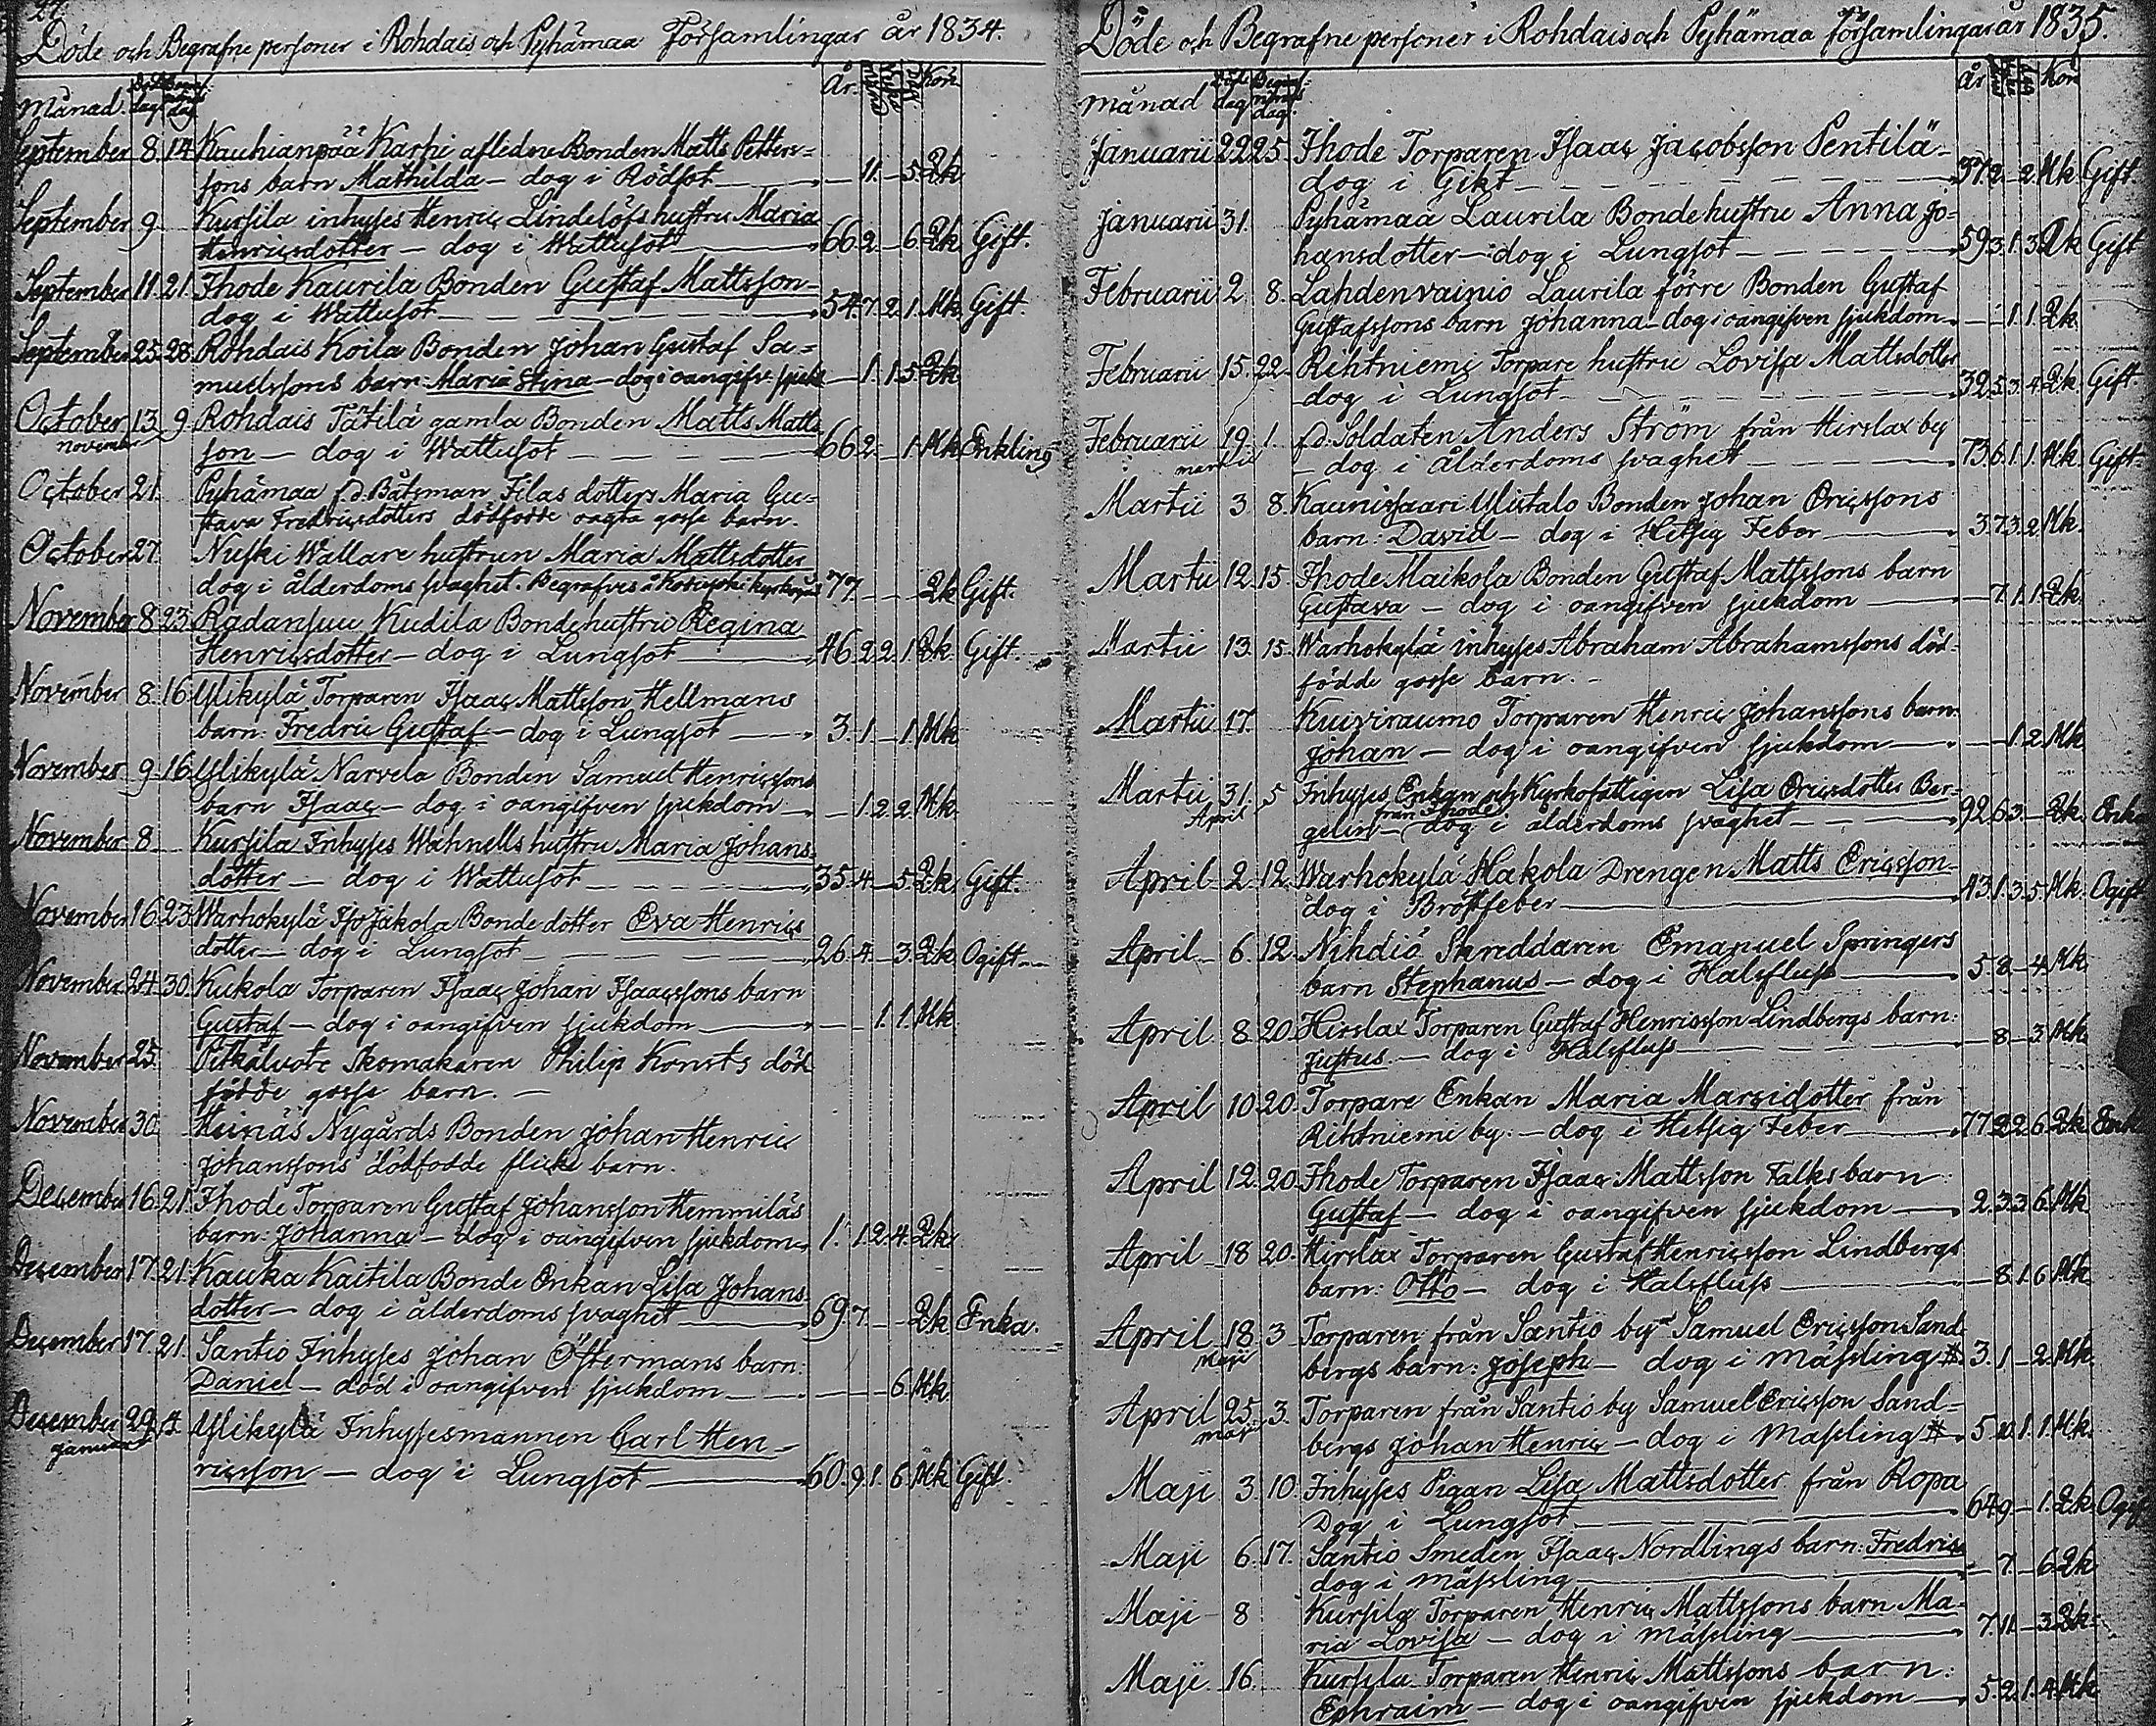 27.
Döde och Begrafne personer i Rohdais och Pyhämaa Församlingar år 1834.
Månad. År. Kön
September 8. 14. Kauhianpää Karhi afledne Bonden Matts Petters-
sons barn Mathilda — dog i Rödsot — 11. — 5. Qk
September 9 Kursila inhyses Henric Lindelöfs hustru Maria
Henricsdotter — dog i Wattusot 66. 2. — 6. Qk Gift.
September 11. 21. Ihode Kaurila Bonden Gustaf Mattsson
dog i Wattusot 54. 7. 2. 1. Mk. Gift.
September 25. 28. Rohdais Koila Bonden Johan Gustaf Sa-
muelssons barn Maria Stina — dog i oangifv. sjuk — 1. 1. 5. Qk
October 13. 9 Rohdais Tätilä gamla Bonden Matts Matts
november
son — dog i Wattusot 66. 2. — 1. Mk Enkling
October 21. Pyhämaa f.d. Båtsman Filas dotters Maria Gu-
stava Fredricsdotters dödfödde oägta gosse barn.
October 27. Nuski Wallare hustrun Maria Mattsdotter
dog i ålderdoms svaghet. Begrafves å 77 — — — Qk Gift.
November 8. 23. Radansuu Kudila Bondehustru Regina
Henricsdotter — dog i Lungsot 46. 2. 2. 1. Qk Gift.
November 8. 16. Ylikylä Torparen Isaac Mattsson Hellmans
barn: Fredric Gustaf — dog i Lungsot 3. 1. — 1. Mk
November 9. 16. Ylikylä Narvela Bonden Samuel Henricssons
barn Isaac — dog i oangifven sjukdom — 1. 2. 2. Mk.
November 8. Kursila Inhyses Wahnells hustru Maria Johans
dotter — dog i Wattusot 35. 4. — 5. Qk Gift.
November 16. 23. Warhokylä Iso Jakola Bondedotter Eva Henrics
dotter — dog i Lungsot 26. 4. — 3. Qk Ogift
November 24. 30. Kukola Torparen Isaac Johan Isaacssons barn
Gustaf — dog i oangifven sjukdom — — 1. 1. Mk.
November 25. Pitkäluoto Skomakaren Philip Konsts död
födde gosse barn. —
November 30. Heinäs Nygårds Bonden Johan Henric
Johanssons dödfödde flicke barn.
December 16. 21. Ihode Torparen Gustaf Johansson Hemmiläs
barn: Johanna — dog i oangifven sjukdom 1. 1. 2. 4. Qk
December 17. 21. Kauka Kaitila Bonde Enkan Lisa Johans
dotter — dog i ålderdoms svaghet 69. 7. — — Qk Enka.
December 17. 21. Santio Inhyses Johan Östermans barn:
Daniel — död i oangifven sjukdom — — — 6. Mk
December 29. 4. Ylikylä Inhysesmannen Carl Hen-
Januari
ricsson — dog i Lungsot 60. 9. 1. 6. Mk Gift.
Döde och Begrafne personer i Rohdais och Pyhämaa församlingar år 1835.
månad År Kön
Januarii 22 25. Ihode Torparen Isaac Jacobsson Pentilä
dog i Gikt 37. 2. — 2. Mk Gift
Januarii 31. Pyhämaa Laurila Bondehustru Anna Jo-
hansdotter — dog i Lungsot 59. 3. 1. 3. Qk Gift
Februarii 2. 8. Lahdenvainio Laurila förre Bonden Gustaf
Gustafssons barn Johanna — dog i oangifven sjukdom — — 1. 1. Qk
Februarii 15. 22. Rihtniemi Torpare hustru Lovisa Mattsdotter
dog i Lungsot 32. 5. 3. 4. Qk Gift.
Februarii 19. 1. f.d. Soldaten Anders Ström från Hirslax by
martii
— dog i ålderdoms svaghet 73. 6. 1. 1. Mk. Gift
Martii 3 8. Kaunissaari Uusitalo Bonden Johan Ericssons
barn: David — dog i Hetsig Feber 3. 7. 3. 2. Mk.
Martii 12. 15. Ihode Maikola Bonden Gustaf Mattssons barn
Gustava — dog i oangifven sjukdom — 7. 1. 1. Qk
Martii 13. 15. Warhokylä inhyses Abraham Abrahamssons död-
födde gosse barn. —
Martii 17. Kuivraumo Torparen Henric Johanssons barn
Johan — dog i oangifven sjukdom — — 1. 2. Mk
Martii 31. 5 Inhyses Enkan och Kyrkofattigen Lisa Ericsdotter Ber-
April från Ihode
gelin — dog i ålderdoms svaghet 92. 6. 3. — Qk. Enka
April 2. 12. Warhokylä Hakola Drengen Matts Ericsson
dog i Bröstfeber 43. 1. 3. 5. Mk. Ogift
April 6. 12. Nihdiö Skreddaren Emanuel Springers
barn Stephanus — dog i Halsfluss 5. 8. — 4. Mk
April 8. 20. Hirslax Torparen Gustaf Henricsson Lindbergs barn:
Justus — dog i Halsfluss — 8. — 3. Mk
April 10. 20. Torpare Enkan Maria Marcidotter från
Rihtniemi by: — dog i Hetsig Feber 77. 2. 2. 6. Qk
April 12. 20. Ihode Torparen Isaac Mattsson Falks barn
Gustaf — dog i oangifven sjukdom 2. 3. 3. 6. Mk
April 18 20. Hirslax Torparen Gustaf Henricsson Lindbergs
barn: Otto — dog i Halsfluss — 8. 1. 6. Mk.
April 18. 3 Torparen från Santio by Samuel Ericsson Sand-
Maji
bergs barn: Joseph — dog i mässling # 3. 1. — 2. Mk.
April 25. 3. Torparen från Santio by Samuel Ericsson Sand-
maji
bergs Johan Henric — dog i Mässling # 5. 10. 1. 1. Mk.
Maji 3. 10. Inhyses Pigan Lisa Mattsdotter från Ropa
Dog i Lungsot 64. 9. — 1. Qk. Ogift
Maji 6. 17. Santio Smeden Isaac Nordlings barn: Fredrica
dog i mässling — 7. — 6. Qk
Maji 8 Kursila Torparen Henric Mattssons barn Ma-
ria Lovisa — dog i mässling 7. 11. — 3. Qk
Maji 16. Kursila Torparen Henric Mattssons barn:
Ephraim — dog i oangifven sjukdom 5. 2. 1. 4. Mk